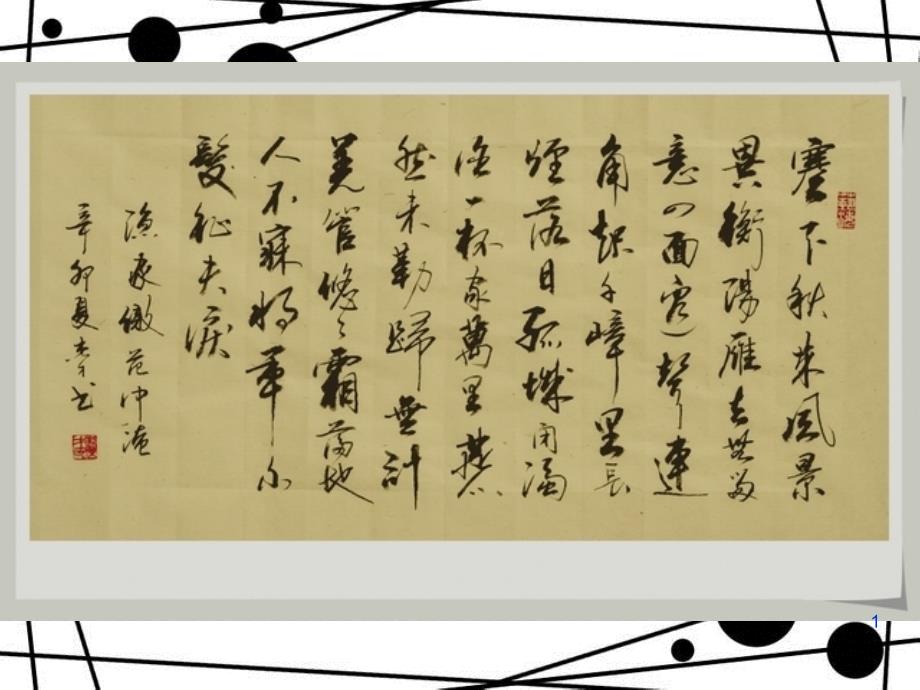 塞下秋来風景
異衡陽雁去無留
意四面邊聲連
角起千嶂里長
煙落日孤城閉濁
酒一杯家萬里燕
然未勒歸無計
羌管悠〻霜满地
人不寐将軍白
髮征夫淚
漁家傲范仲淹
辛卯夏书
1